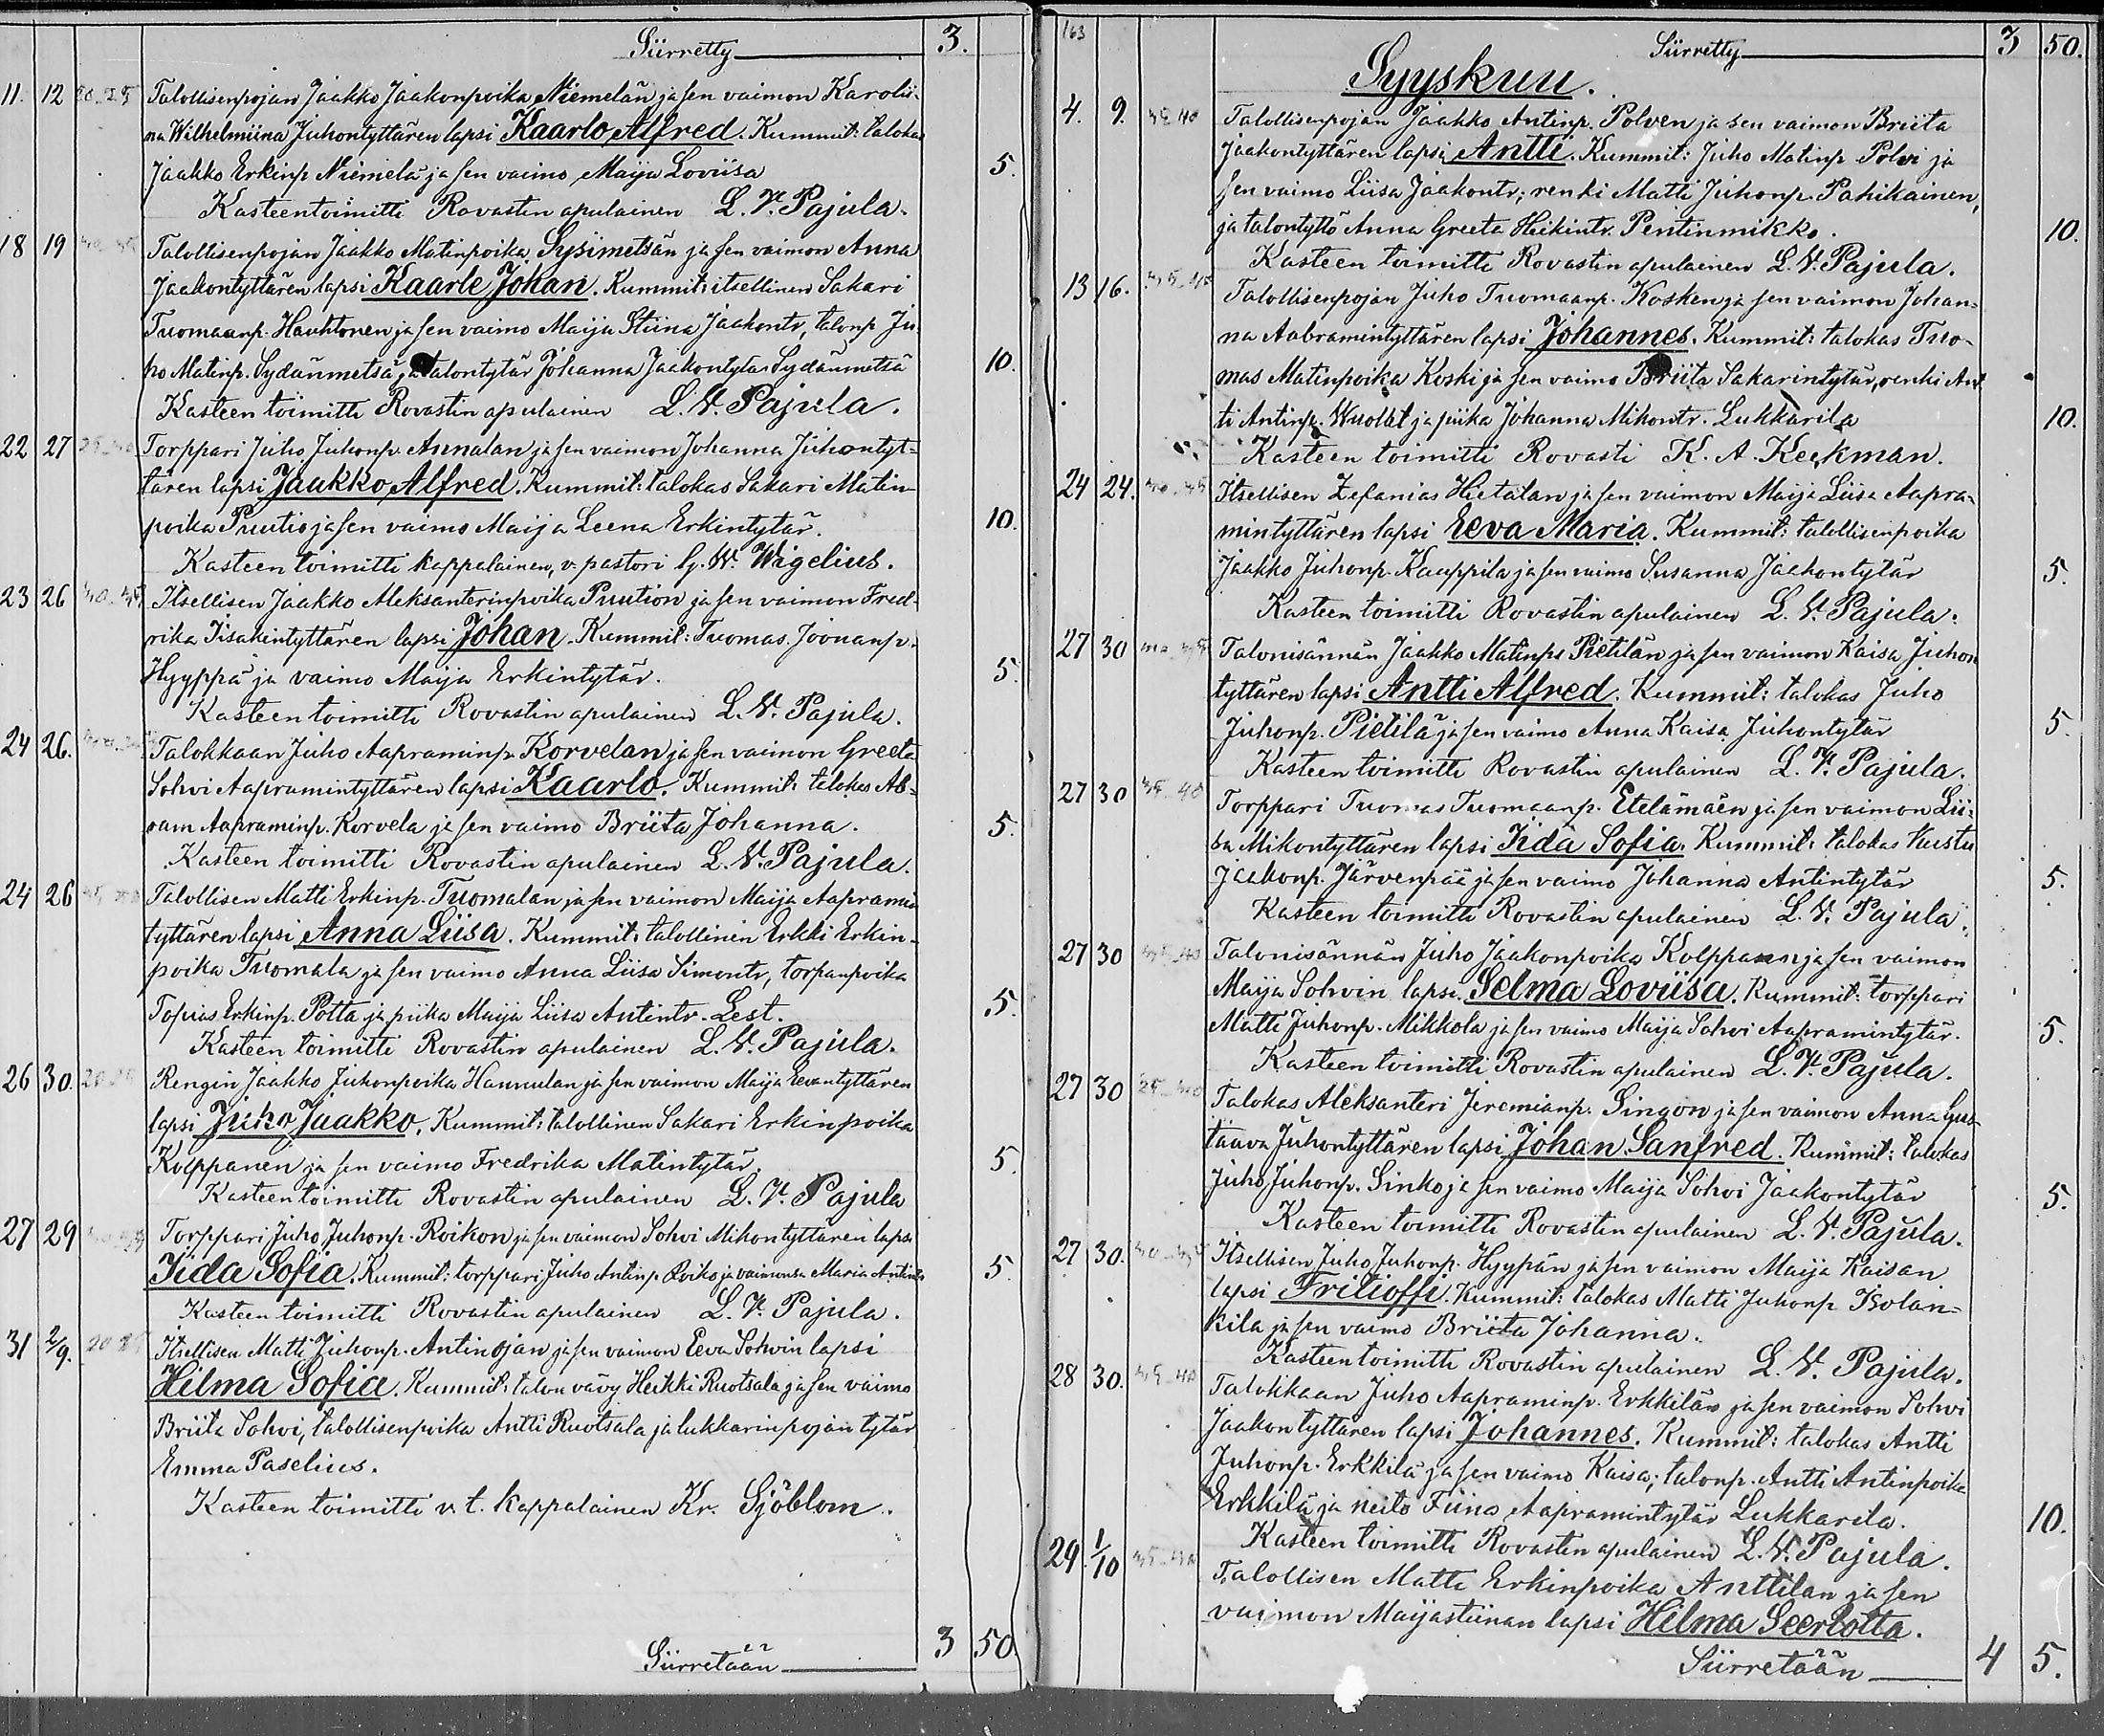 Siirretty 3.
11. 12 20-25 Talollisenpojan Jaakko Jaakonpoika Niemelän ja sen vaimon Karolii-
na Wilhelmiina Juhontyttären lapsi Kaarlo Alfred. Kummit: talokas
Jaakko Erkinp Niemelä ja sen vaimo Maija Loviisa 5.
Kasteen toimitti Rovastin apulainen L. V. Pajula.
18 19 Talollisenpojan Jaakko Matinpoika Sysimetsän ja sen vaimon Anna
Jaakontyttären lapsi Kaarle Johan. Kummit: itsellinen Sakari
Tuomaanp. Hauhtonen ja sen vaimo Maija Stiina Jaakontr, talonp Ju-
ho Matinp. Sydänmetsä ja talontytär Johanna Jaakontytär Sydänmetsä 10.
Kasteen toimitti Rovastin apulainen L. V. Pajula.
22 27 Torppari Juho Juhonp. Asenalan ja sen vaimon Johanna Juhontyt-
tären lapsi Jaakko Alfred. Kummit: talokas Sakari Matin-
poika Puutio ja sen vaimo Maija Leena Erkintytär. 10.
Kasteen toimitti kappalainen, v. pastori G. W. Wigelius.
23 26 Itsellisen Jaakko Aleksanterinpoika Puution ja sen vaimon Fred-
rika Iisakintyttären lapsi Johan. Kummit: Tuomas Joonanp.
Hyyppä ja vaimo Maija Erkintytär. 5.
Kasteen toimitti Rovastin apulainen L. V. Pajula.
24 26. Talokkaan Juho Aapraminp. Korvelan ja sen vaimon Greeta
Sohvi Aapramintyttären lapsi Kaarlo. Kummit: talokas Ab-
ram Aapraminp. Korvela ja sen vaimo Briita Johanna. 5.
Kasteen toimitti Rovastin apulainen L. V. Pajula.
24 26 Talollisen Matti Erkinp. Tuomalan ja sen vaimon Maija Aapramin
tyttären lapsi Anna Liisa. Kummit: talollinen Erkki Erkin-
poika Tuomala ja sen vaimo Anna Liisa Simontr, torpanpoika
Topias Erkinp. Potta ja piika Maija Liisa Antintr. Lest. 5.
Kasteen toimitti Rovastin apulainen L. V. Pajula.
26 30. Rengin Jaakko Juhonpoika Hannulan ja sen vaimon Maija Eevantyttären
lapsi Juho Jaakko. Kummit: talollinen Sakari Erkinpoika
Kolppanen ja sen vaimo Fredrika Matintytär. 5.
Kasteen toimitti Rovastin apulainen L. V. Pajula
27 29 Torppari Juho Juhonp. Roikon ja sen vaimon Sohvi Mikontyttären lapsi
Iida Sofia. Kummit: torppari Juho Antinp Roiko ja vaimonsa Maria Antintr 5.
Kasteen toimitti Rovastin apulainen L. V. Pajula.
31 2/9. Itsellisen Matti Juhonp. Antinojan ja sen vaimon Eeva Sohvin lapsi
Hilma Sofia. Kummit: talon vävy Heikki Ruotsala ja sen vaimo
Briita Sohvi, talollisenpoika Antti Ruotsala ja lukkarinpojan tytär
Emma Paselius.
Kasteen toimitti v. t. kappalainen Kr. Sjöblom.
Siirretään 3 50.
163
Siirretty 3 50.
Syyskuu.
4. 9. Talollisenpojan Jaakko Antinp. Polven ja sen vaimon Briita
Jaakontyttären lapsi Antti. Kummit: Juho Matinp Polvi ja
sen vaimo Liisa Jaakontr; renki Matti Juhonp. Pahikainen,
ja talontyttö Anna Greeta Heikintr. Pentinmikko. 10.
Kasteen toimitti Rovastin apulainen L. V. Pajula.
13 16. Talollisenpojan Juho Tuomaanp. Kosken ja sen vaimon Johan-
na Aabramintyttären lapsi Johannes. Kummit: talokas Tuo-
mas Matinpoika Koski ja sen vaimo Briita Sakarintytär, renki Ant-
ti Antinp. Wuollet ja piika Johanna Mikontr. Lukkarila 10.
Kasteen toimitti Rovasti K. A. Keckman.
24 24. Itsellisen Zefanias Hietalan ja sen vaimon Maija Liisa Aapra-
mintyttären lapsi Eeva Maria. Kummit: talollisenpoika
Jaakko Juhonp. Kauppila ja sen vaimo Susanna Jaakontytär 5.
Kasteen toimitti Rovastin apulainen L. V. Pajula.
27 30 Talonisännän Jaakko Matinps Pietilän ja sen vaimon Kaisa Juhon
tyttären lapsi Antti Alfred. Kummit: talokas Juho
Juhonp. Pietilä ja sen vaimo Anna Kaisa Juhontytär 5.
Kasteen toimitti Rovastin apulainen L. V. Pajula.
27 30 35-40 Torppari Tuomas Tuomaanp. Etelämäen ja sen vaimon Lii-
sa Mikontyttären lapsi Iida Sofia. Kummit: talokas Kustu
Jaakonp. Järvenpää ja sen vaimo Johanna Antintytär 5.
Kasteen toimitti Rovastin apulainen L. V. Pajula.
27 30 Talonisännän Juho Jaakonpoika Kolppasen ja sen vaimon
Maija Sohvin lapsi Selma Loviisa. Kummit: torppari
Matti Juhonp. Mikkola ja sen vaimo Maija Sohvi Aapramintytär. 5.
Kasteen toimitti Rovastin apulainen L. V. Pajula.
27 30 Talokas Aleksanteri Jeremianp. Singon ja sen vaimon Anna Gus-
taava Juhontyttären lapsi Johan Sanfred. Kummit: talokas
Juho Juhonp. Sinko ja sen vaimo Maija Sohvi Jaakontytär 5.
Kasteen toimitti Rovastin apulainen L. V. Pajula.
27 30. Itsellisen Juho Juhonp. Hyypän ja sen vaimon Maija Kaisan
lapsi Fritioffi. Kummit: talokas Matti Juhonp Isolan-
kila ja sen vaimo Briita Johanna.
Kasteen toimitti Rovastin apulainen L. V. Pajula.
28 30. Talokkaan Juho Aapraminp. Erkkilän ja sen vaimon Sohvi
Jaakontyttären lapsi Johannes. Kummit: talokas Antti
Juhonp. Erkkilä ja sen vaimo Kaisa; talonp. Antti Antinpoika
Erkkilä ja neito Fiina Aapramintytär Lukkarila. 10.
Kasteen toimitti Rovastin apulainen L. V. Pajula.
29. 1/10 Talollisen Matti Erkinpoika Anttilan ja sen
vaimon Maijastiinan lapsi Hilma Seerlotta.
Siirretään 4 5.